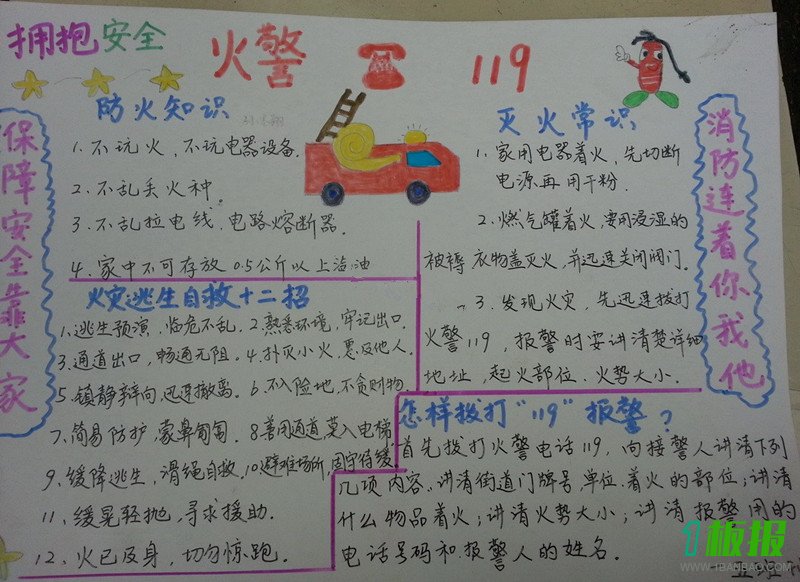 拥抱安全
火警 119
保障安全靠大家
防火知识
1.不玩火,不玩电器设备.
2.不乱丢火种。
3.不乱拉电线、电路熔断器.
4、家中不可存放0.5公斤以上油
火灾逃生自救十二招
1.逃生预演,临危不乱.2.熟悉环境,牢记出口.
3.通道出口,畅通无阻.4.扑灭小火,惠及他人.
5.镇静辨向,迅速撤离.6.不入险地,不贪财物
7.简易防护,蒙鼻匍匐.8善用通道,莫入电梯
9、缓降逃生,滑绳自救.10避难场所,固守待援.
11、缓晃轻抛,寻求援助.
12、火已及身,切勿惊跑.
灭火常识
1.家用电器着火,先切断
电源再用干粉.
2.燃气罐着火,要用浸湿的
被褥、衣物盖灭火,并迅速关闭阀门。
3.发现火灾,先迅速拨打
火警119,报警时要讲清楚详细
地址,起火部位、火势大小.
消防连着你我他
怎样拨打"119"报警?
首先拨打火警电话119,向接警人讲清下列
几项内容、讲清街道门牌号,单位、着火的部位;讲清
什么物品着火;讲清火势大小;讲清报警用的
电话号码和报警人的姓名.
板报
WWW.1BANBAO.COM